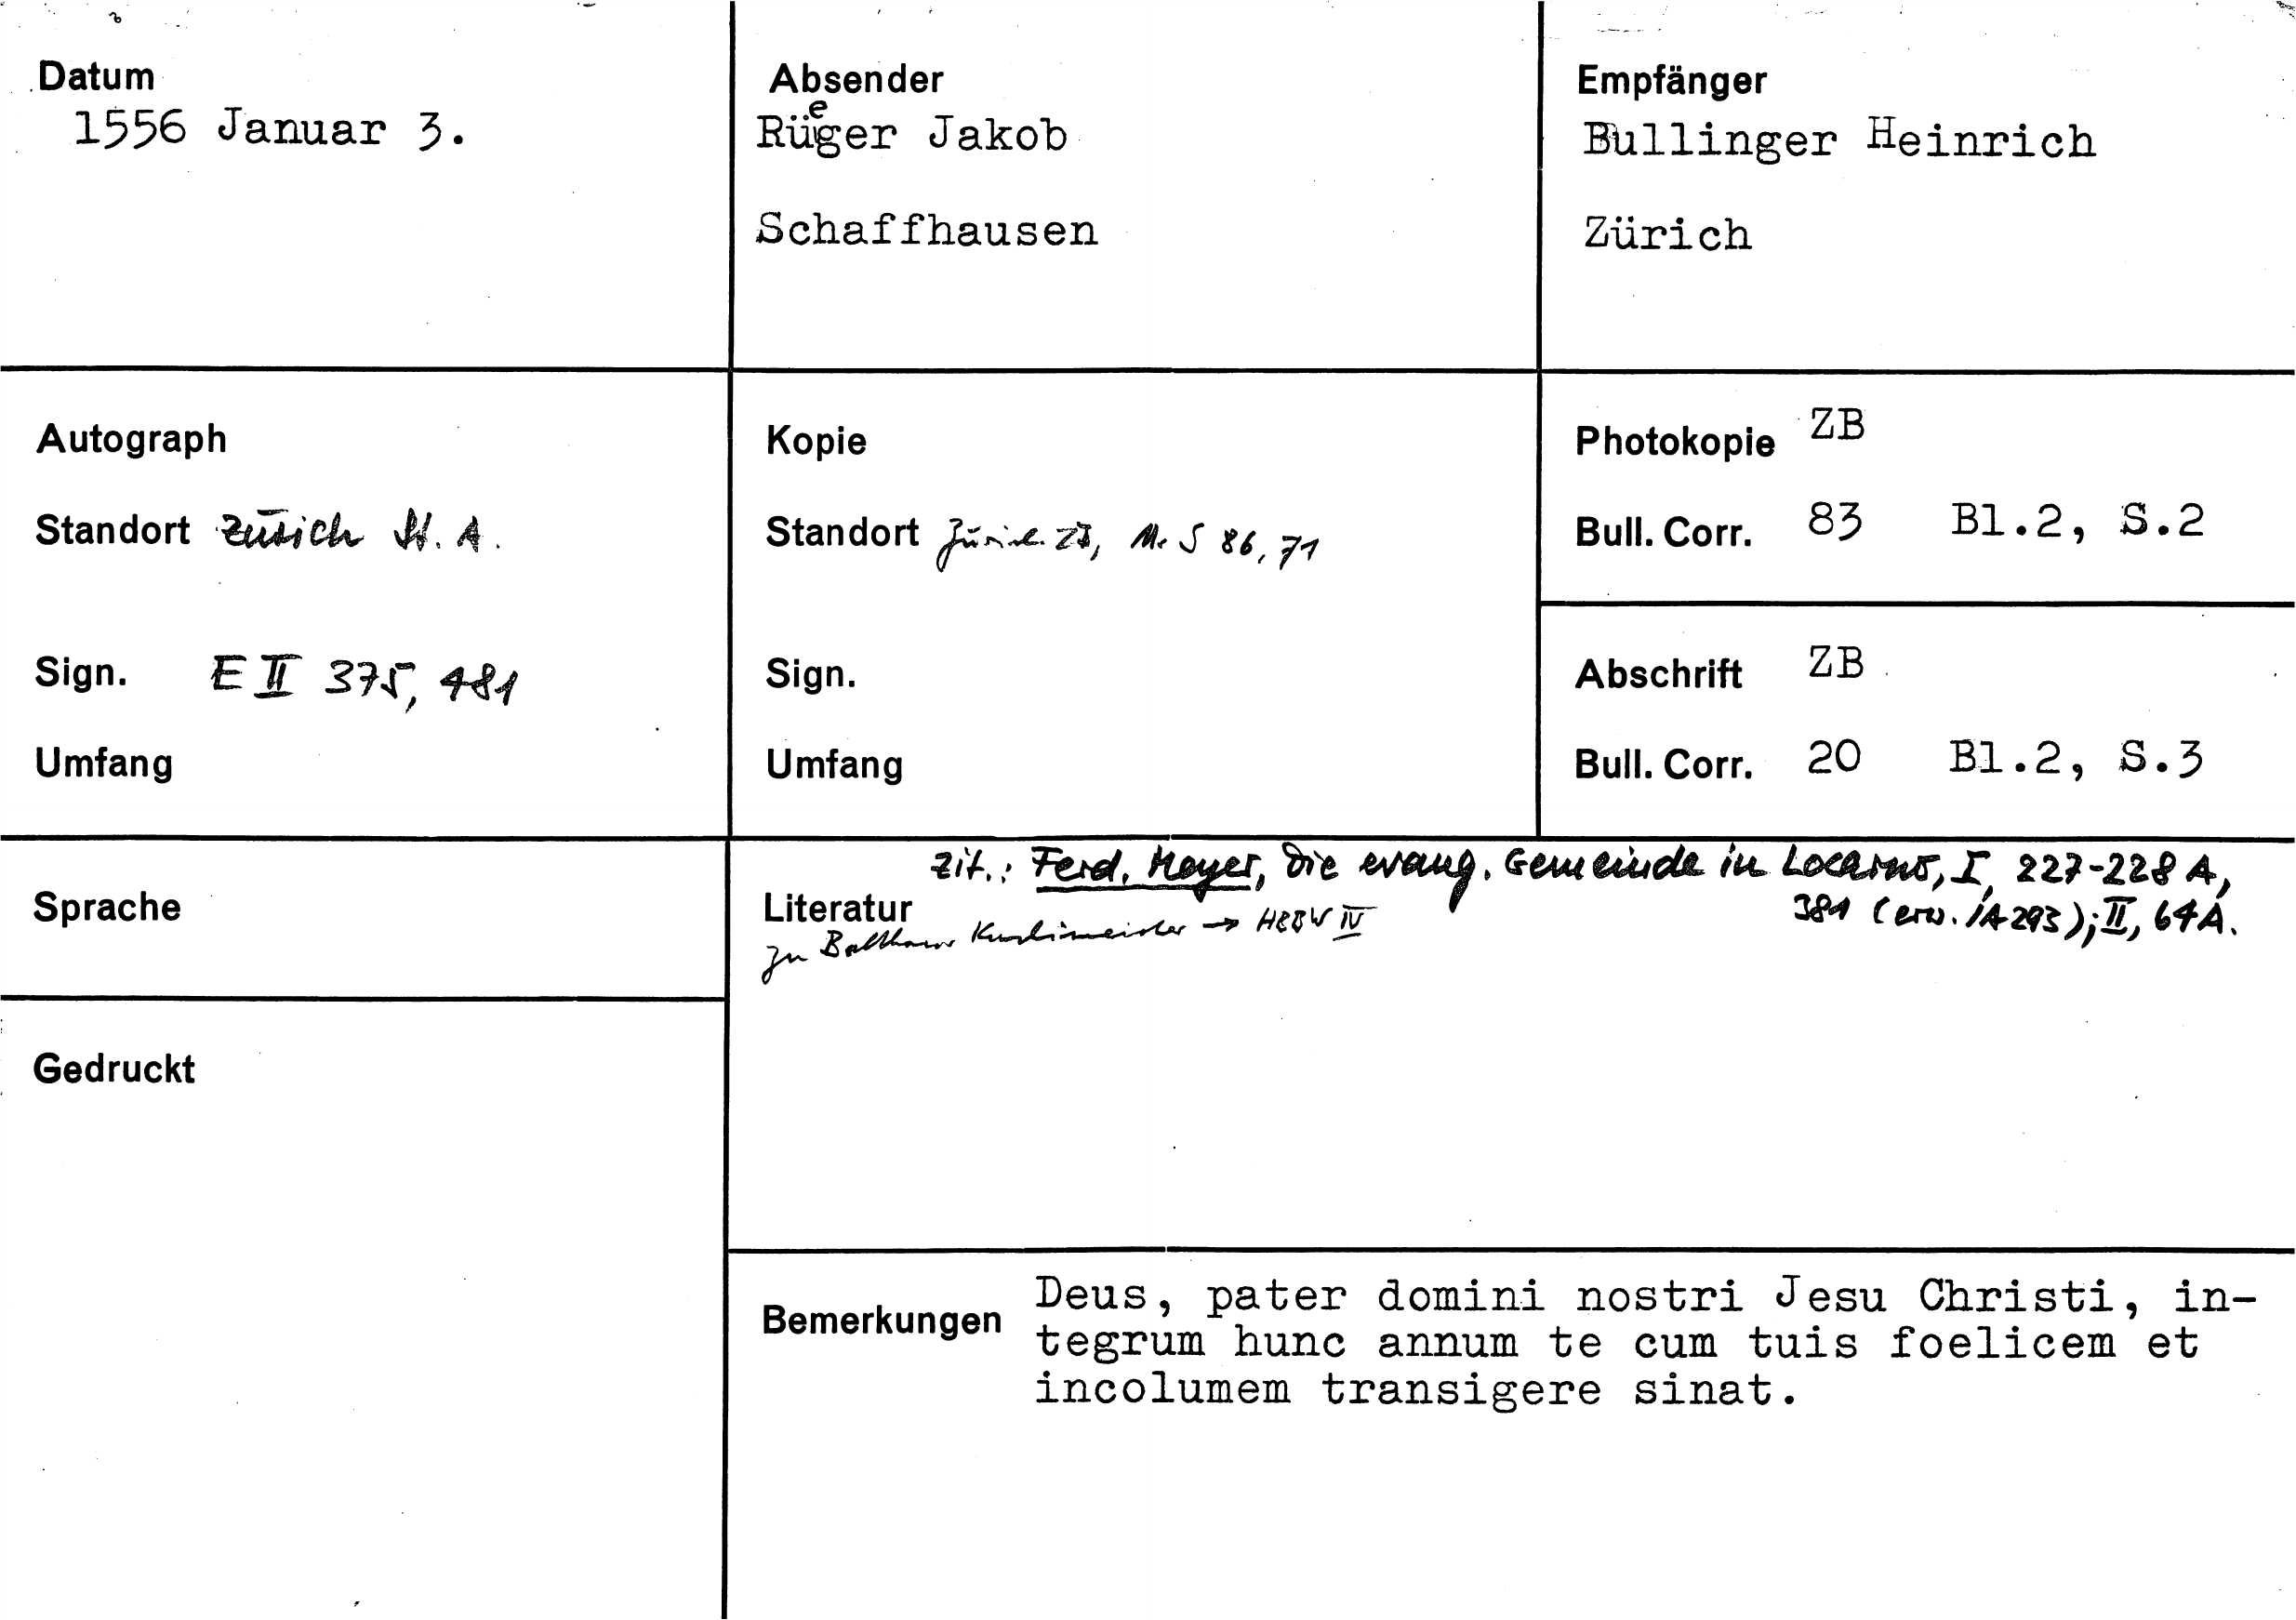 Datum
1556 Januar 3.
Absender
Rüeger Jakob
Schaffhausen
Empfänger
Bullinger Heinrich
Zürich
Autograph
Standort Zürich St. A.
Sign. E II 375, 481
Umfang
Kopie
Standort Zürich ZB, Ms S 86, 71
Sign.
Umfang
Photokopie ZB
Bull. Corr. 83 Bl.2, S.2
Abschrift ZB
Bull. Corr. 20 Bl.2, S.3
Sprache
Gedruckt
zit.: Ferd. Meyer, Die evang. Gemeinde in Locarno, I, 227-228 A,
Literatur 381 (erw. A 293); II, 64 A.
zu → HBBW IV
Bemerkungen
Deus, pater domini nostri Jesu Christi, in-
tegrum hunc annum te cum tuis foelicem et
incolumem transigere sinat.